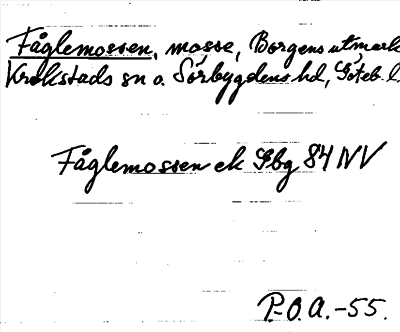 Fåglemossen, mosse, Borgens utmark
Krokstads sn o. Sörbygdens hd, Göteb. l.
Fåglemossen ek Gbg 84 NV
P.O.A.-55.